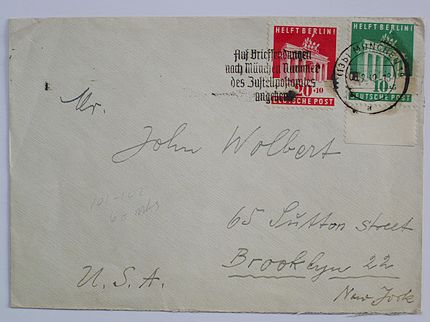 HELFT BERLIN!
20+10
DEUTSCHE POST
HELFT BERLIN!
10
DEUTSCHE POST
(13b) MÜNCHEN
a
Auf Briefsendungen
nach München Nummer
des Zustellpostamtes
angeben
Mr.
John Wolbert
101-102
65 Sutton Street
Brooklyn 22
U.S.A.
New York